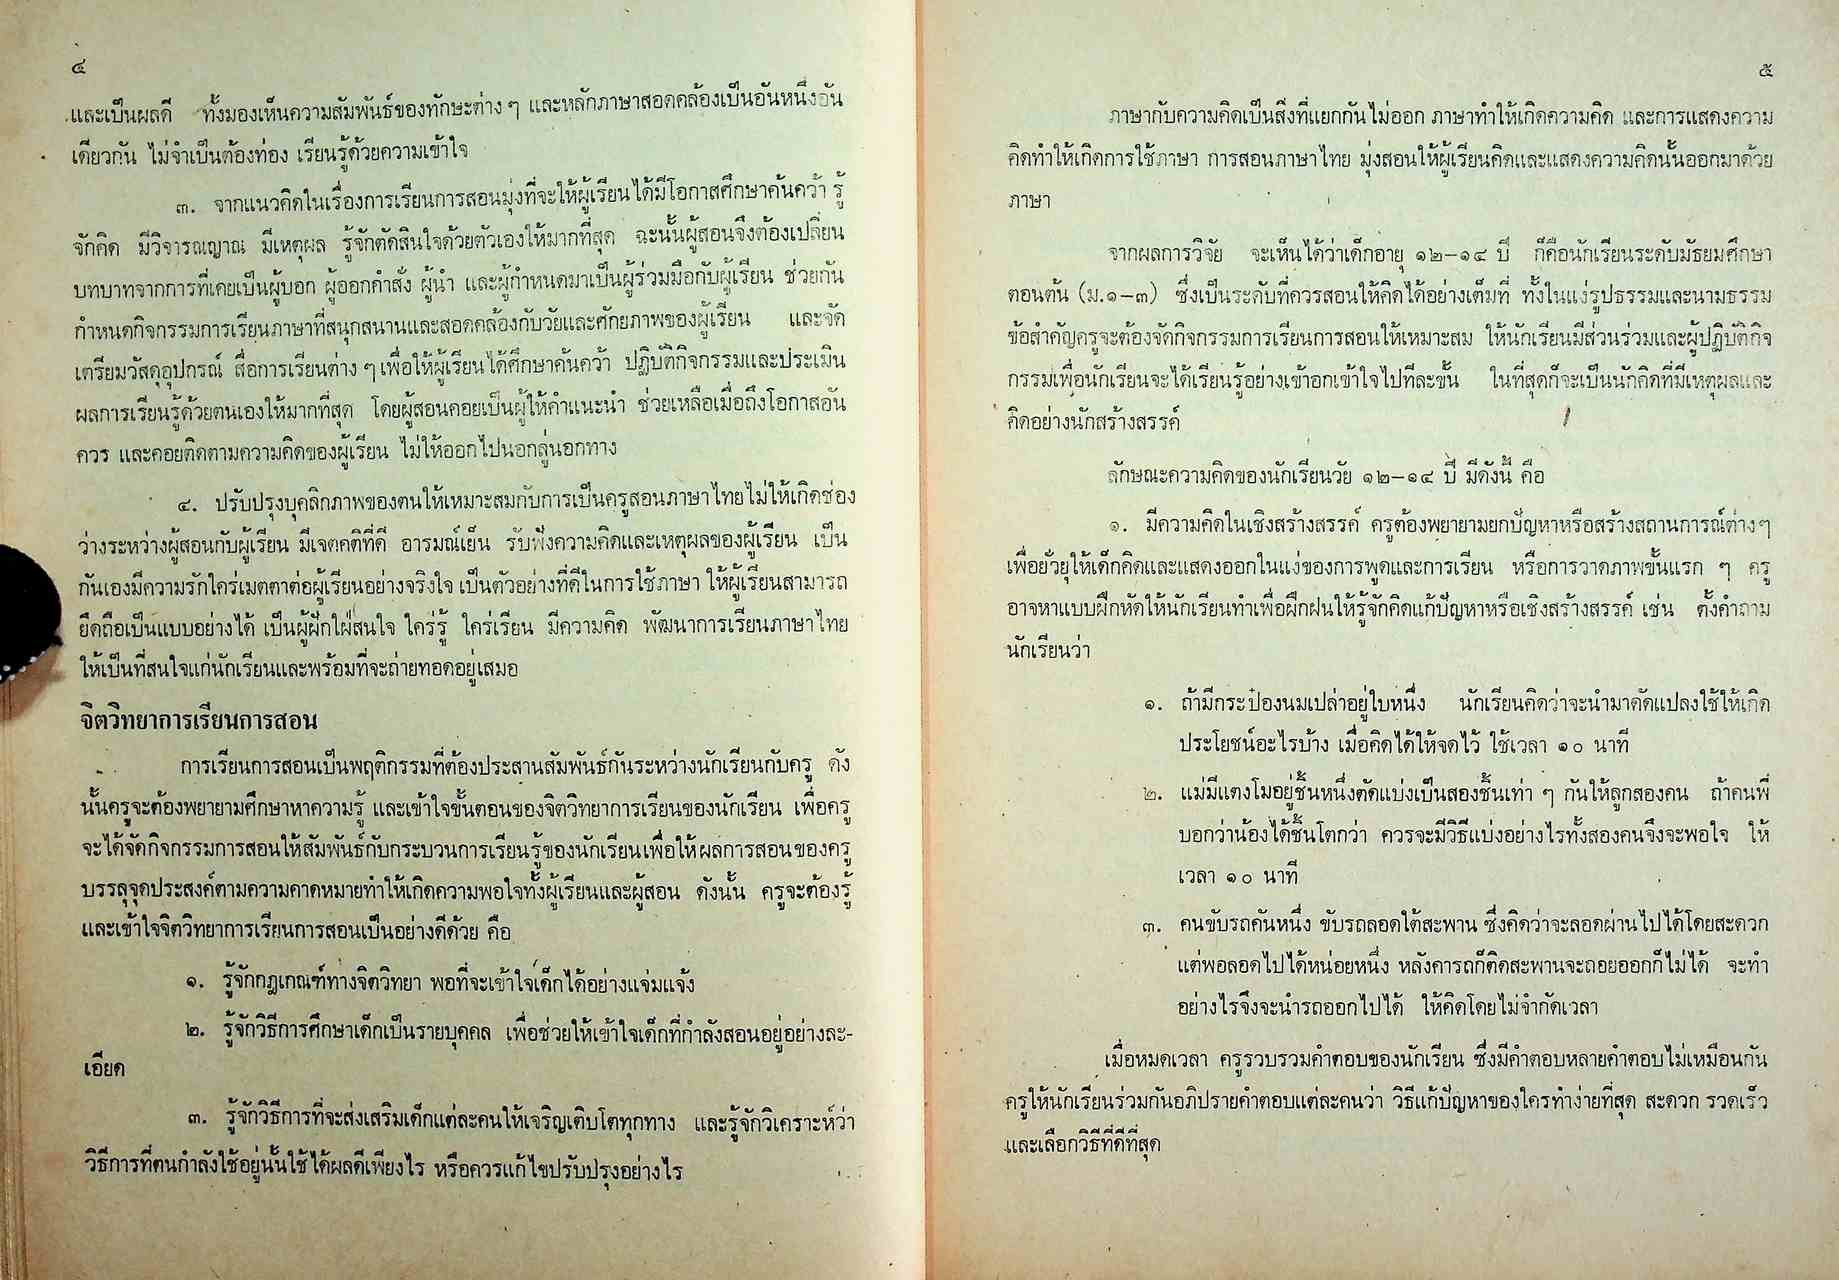 ๔
และเป็นผลดี ทั้งมองเห็นความสัมพันธ์ของทักษะต่าง ๆ และหลักภาษาสอดคล้องเป็นอันหนึ่งอัน
เดียวกัน ไม่จำเป็นต้องท่อง เรียนรู้ด้วยความเข้าใจ
๓. จากแนวคิดในเรื่องการเรียนการสอนมุ่งที่จะให้ผู้เรียนได้มีโอกาสศึกษาค้นคว้า รู้
จักคิด มีวิจารณญาณ มีเหตุผล รู้จักตัดสินใจด้วยตัวเองให้มากที่สุด ฉะนั้นผู้สอนจึงต้องเปลี่ยน
บทบาทจากการที่เคยเป็นผู้บอก ผู้ออกคำสั่ง ผู้นำ และผู้กำหนดมาเป็นผู้ร่วมมือกับผู้เรียน ช่วยกัน
กำหนดกิจกรรมการเรียนภาษาที่สนุกสนานและสอดคล้องกับวัยและศักยภาพของผู้เรียน และจัด
เตรียมวัสดุอุปกรณ์ สื่อการเรียนต่าง ๆ เพื่อให้ผู้เรียนได้ศึกษาค้นคว้า ปฏิบัติกิจกรรมและประเมิน
ผลการเรียนรู้ด้วยตนเองให้มากที่สุด โดยผู้สอนคอยเป็นผู้ให้คำแนะนำ ช่วยเหลือเมื่อถึงโอกาสอัน
ควร และคอยติดตามความคิดของผู้เรียน ไม่ให้ออกไปนอกลู่นอกทาง
๔. ปรับปรุงบุคลิกภาพของตนให้เหมาะสมกับการเป็นครูสอนภาษาไทยไม่ให้เกิดช่อง
ว่างระหว่างผู้สอนกับผู้เรียน มีเจตคติที่ดี อารมณ์เย็น รับฟังความคิดและเหตุผลของผู้เรียน เป็น
กันเองมีความรักใคร่เมตตาต่อผู้เรียนอย่างจริงใจ เป็นตัวอย่างที่ดีในการใช้ภาษา ให้ผู้เรียนสามารถ
ยึดถือเป็นแบบอย่างได้ เป็นผู้ฝักใฝ่สนใจ ใคร่รู้ ใคร่เรียน มีความคิด พัฒนาการเรียนภาษาไทย
ให้เป็นที่สนใจแก่นักเรียนและพร้อมที่จะถ่ายทอดอยู่เสมอ
จิตวิทยาการเรียนการสอน
การเรียนการสอนเป็นพฤติกรรมที่ต้องประสานสัมพันธ์กันระหว่างนักเรียนกับครู ดัง
นั้นครูจะต้องพยายามศึกษาหาความรู้ และเข้าใจขั้นตอนของจิตวิทยาการเรียนของนักเรียน เพื่อครู
จะได้จัดกิจกรรมการสอนให้สัมพันธ์กับกระบวนการเรียนรู้ของนักเรียนเพื่อให้ผลการสอนของครู
บรรลุจุดประสงค์ตามความคาดหมายทำให้เกิดความพอใจทั้งผู้เรียนและผู้สอน ดังนั้น ครูจะต้องรู้
และเข้าใจจิตวิทยาการเรียนการสอนเป็นอย่างดีด้วย คือ
๑. รู้จักกฎเกณฑ์ทางจิตวิทยา พอที่จะเข้าใจเด็กได้อย่างแจ่มแจ้ง
๒. รู้จักวิธีการศึกษาเด็กเป็นรายบุคคล เพื่อช่วยให้เข้าใจเด็กที่กำลังสอนอยู่อย่างละ-
เอียด
๓. รู้จักวิธีการที่จะส่งเสริมเด็กแต่ละคนให้เจริญเติบโตทุกทาง และรู้จักวิเคราะห์ว่า
วิธีการที่ตนกำลังใช้อยู่นั้นใช้ได้ผลดีเพียงไร หรือควรแก้ไขปรับปรุงอย่างไร
๕
ภาษากับความคิดเป็นสิ่งที่แยกกันไม่ออก ภาษาทำให้เกิดความคิด และการแสดงความ
คิดทำให้เกิดการใช้ภาษา การสอนภาษาไทย มุ่งสอนให้ผู้เรียนคิดและแสดงความคิดนั้นออกมาด้วย
ภาษา
จากผลการวิจัย จะเห็นได้ว่าเด็กอายุ ๑๒–๑๔ ปี ก็คือนักเรียนระดับมัธยมศึกษา
ตอนต้น (ม.๑–๓) ซึ่งเป็นระดับที่ควรสอนให้คิดได้อย่างเต็มที่ ทั้งในแง่รูปธรรมและนามธรรม
ข้อสำคัญครูจะต้องจัดกิจกรรมการเรียนการสอนให้เหมาะสม ให้นักเรียนมีส่วนร่วมและผู้ปฏิบัติกิจ
กรรมเพื่อนักเรียนจะได้เรียนรู้อย่างเข้าอกเข้าใจไปทีละขั้น ในที่สุดก็จะเป็นนักคิดที่มีเหตุผลและ
คิดอย่างนักสร้างสรรค์
ลักษณะความคิดของนักเรียนวัย ๑๒–๑๔ ปี มีดังนี้ คือ
๑. มีความคิดในเชิงสร้างสรรค์ ครูต้องพยายามยกปัญหาหรือสร้างสถานการณ์ต่างๆ
เพื่อยั่วยุให้เด็กคิดและแสดงออกในแง่ของการพูดและการเรียน หรือการวาดภาพขั้นแรก ๆ ครู
อาจหาแบบฝึกหัดให้นักเรียนทำเพื่อฝึกฝนให้รู้จักคิดแก้ปัญหาหรือเชิงสร้างสรรค์ เช่น ตั้งคำถาม
นักเรียนว่า
๑. ถ้ามีกระป๋องนมเปล่าอยู่ใบหนึ่ง นักเรียนคิดว่าจะนำมาดัดแปลงใช้ให้เกิด
ประโยชน์อะไรบ้าง เมื่อคิดได้ให้จดไว้ ใช้เวลา ๑๐ นาที
๒. แม่มีแตงโมอยู่ชิ้นหนึ่งตัดแบ่งเป็นสองชิ้นเท่า ๆ กันให้ลูกสองคน ถ้าคนพี่
บอกว่าน้องได้ชิ้นโตกว่า ควรจะมีวิธีแบ่งอย่างไรทั้งสองคนจึงจะพอใจ ให้
เวลา ๑๐ นาที
๓. คนขับรถคันหนึ่ง ขับรถลอดใต้สะพาน ซึ่งคิดว่าจะลอดผ่านไปได้โดยสะดวก
แต่พอลอดไปได้หน่อยหนึ่ง หลังคารถก็ติดสะพานจะถอยออกก็ไม่ได้ จะทำ
อย่างไรจึงจะนำรถออกไปได้ ให้คิดโดยไม่จำกัดเวลา
เมื่อหมดเวลา ครูรวบรวมคำตอบของนักเรียน ซึ่งมีคำตอบหลายคำตอบไม่เหมือนกัน
ครูให้นักเรียนร่วมกันอภิปรายคำตอบแต่ละคนว่า วิธีแก้ปัญหาของใครทำง่ายที่สุด สะดวก รวดเร็ว
และเลือกวิธีที่ดีที่สุด